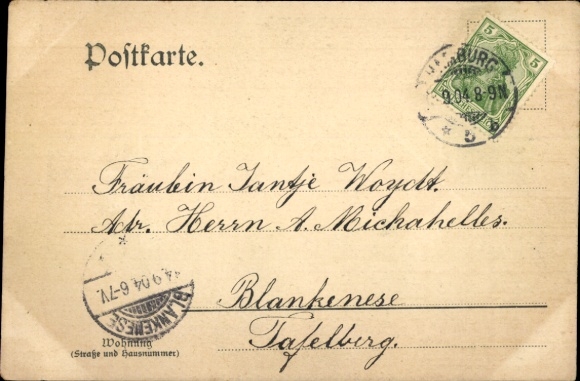 Postkarte.
5 5
HAMBURG
9.04.8-9N
* 5 b
Fräulein Tantje Woydt.
Adr. Herrn A. Mickahelles.
14.9.04.6-7V.
BLANKENESE
Blankenese
Tafelberg.
Wohnung
(Straße und Hausnummer)